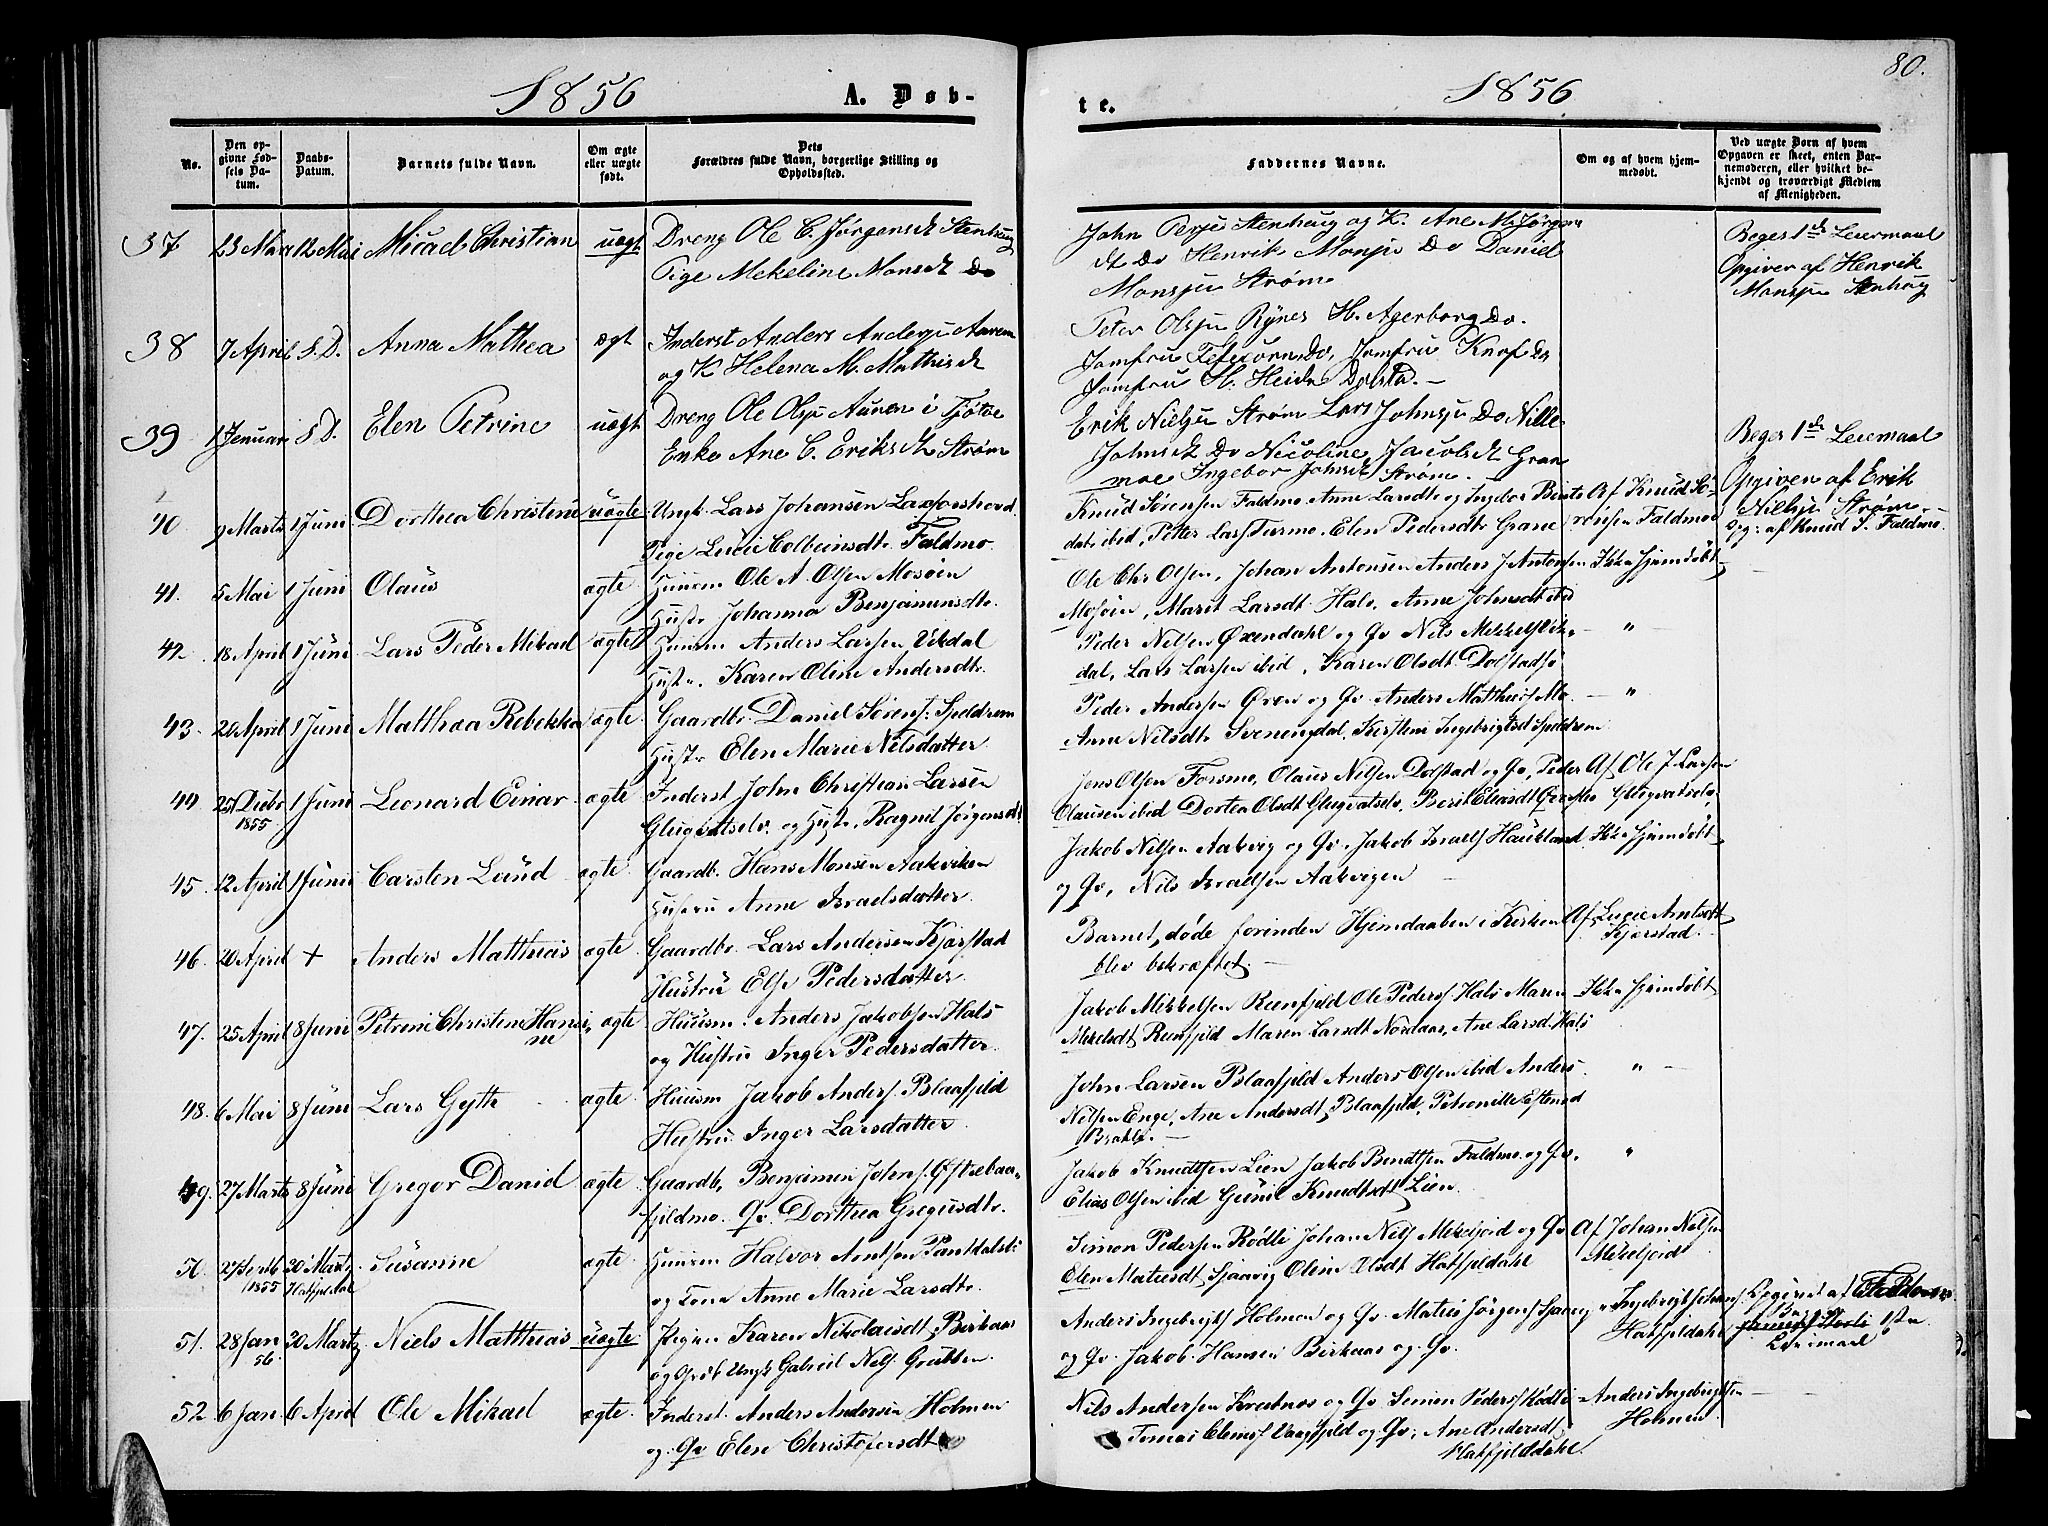 80.
1856 A. Døb-
te. 1856
No.
Den op-
givne Fød-
sels Da-
tum.
Daabs-
Datum.
Barnets fulde Navn.
Om ægte
eller uægte
født.
Dets
Forældres fulde Navn, borgerlige Stilling og
Opholdssted.
Faddernes Navne.
Om og af hvem hjem-
medøbt.
Ved uægte Børn af hvem
Opgaven er skeet, enten Bar-
nemoderen, eller hvilket be-
kjendt og troværdigt Medlem
af Menigheden.
37 23 Mai Micael Christian uægt Dreng Ole C. Jørgensen Stenhaug
Pige Mekeline Monsdt Do
John Persen Stenhaug og K. Ane M. Jørgens
dt Do Henrik Monsen Do Daniel
Monsen Strøm
Beges 1ste Leiermaal
Opgiven af Henrik
Monsen Stenhaug
38 7 April S. D. Anna Mathea ægt Inderst Anders Andersen
og K Helena M. Mathisdt
Peter Olsen Rynes H. Agerborg Do.
Jomfru Do, Jomfru Do
Jomfru H. Heide Dolstad.
39 1 Januar S D. Elen Petrine uægt Dreng Ole Olsen Aunen i Tjøtta
Enke Ane C. Eriksdt Strøm
Erik Nielsen Strøm Lars Johnsen Do Nille
Johnsdt Do Nicoline Jacobsdt Gran
moe Ingebor Johnsdt Strøm.
Beges 1ste Leiermaal
Opgiven af Erik
Nielsen Strøm.
40 9 Marts 1 Juni Dorthea Christine uægte Ungk. Lars Johansen Laxforshoved
Pige Lucie Colbeinsdtr. Faldmo
Knud Sørensen Faldmo, Anne Larsdtr og Ingebor Bents
datr ibid, Petter Larss Turmo, Elen Pedersdtr Grane
Af Knud Sø-
rensen Faldmoe
Opg: af Knud S. Faldmo.
41. 5 Mai 1 Juni Olaus ægte Huusm Ole A. Olsen Mosøen
Hustr. Johanna Benjaminsdtr.
Ole Chr Olsen, Johan Antonsen Anders J Antonsen
Mosøen, Marit Larsdt Hals, Anne Johnsdt ibid
Ikke hjemdøbt
42. 18 April 1 Juni Lars Peder Mikael ægte Huusm Anders Larsen Vikdal
Hustr. Karen Oline Andersdtr.
Peder Nilsen Øxendahl og Qv Nils Mekkels Vik-
dal, Lars Larsen ibid, Karen Olsdt Dolstads
"
43. 20 April 1 Juni Matthea Rebekka ægte Gaardbr. Daniel Sørens: Speldrem
Hustr Elen Marie Nilsdatter
Peder Andersen Øren og Qv Anders Matthiass Mo
Anne Nilsdtr Svenningdal, Kirstine Ingebrigtsd Speldrem
"
44. 25 Decbr 1855 1 Juni Leonard Einar ægte Inderst John Christian Larsen
Glugvatselv. og Hustr. Ragnil Jørgensdt
Jens Olsen Forsmo, Olaus Nilsen Dolstad og Qv, Peder
Olausen ibid Dortea Olsdt Glugvatselv, Berit Eliasdt
Af Ole J Larsen
Glugvatselv.
45. 12 April 1 Juni Carsten Lund ægte Gaardb. Hans Monsen Aakviken
Hustru Anne Israelsdatter.
Jakob Nilsen Aakvig og Qv. Jakob Israels Haukland
og Qv, Nils Israelsen Aakvigen
Ikke hjemdøbt
46. 20 April + Anders Matthias ægte Gaardbr. Lars Andersen Kjærstad
Hustru Else Pedersdatter
Barnet døde forinden Hjemdaaben i Kirken
blev bekræftet.
Af Lucie Arntsdt
Kjærstad.
47. 25 April 8 Juni Petrine Christine Hansi-
ne ægte Huusm. Anders Jakobsen Hals
og Hustru Inger Pedersdatter.
Jakob Mikkelsen Reenfjeld Ole Peders Hals Maren
Mikkelsdt Reenfjeld Maren Larsdt Nordaas, Ane Larsd. Hals
Ikke hjemdøbt
48. 6 Mai 8 Juni Lars Gytte ægte Huusm Jakob Anders. Blaafjeld
Hustru Inger Larsdatter.
John Larsen Blaafjeld Anders Olsen ibid Anders
Nilsen Enge, Ane Andersdt Blaafjeld, Petronille
"
49. 27 Marts 8 Juni Gregor Daniel ægte Gaardb. Benjamin Johns. Øftrebaa-
fjeldmo. Qv. Dorthea Gregusdtr.
Jakob Knudsen Lien Jakob Bendtsen Faldmo og Qv,
Elias Olsen ibid Gunil Knudsdt Lien
"
50. 27 Septb 1855 30 Martz Hatfjeldal Susanne ægte Huusm Halvor Arntsen Pantdalsli
og Kona Anne Marie Larsdtr.
Simon Pedersen Rødli Johan Nils Mikkeljord og Qv
Elen Matiesdt Sjaavig Oline Olsdt Hatfjeldahl
Af Johan Nilsen
Mikkeljord
51. 28 Jan 56. 30 Martz Niels Matthias uægte Pigen Karen Nikolaisdt. Birkaas
og Ungk. Gabriel Nils. Grubben
Anders Ingebrigts Holmen og Qv. Maties Jørgens Sjaavig
og Qv. Jakob Hansen Birkaas og Qv.
Ingebrigt Johans
Hatfjeldahl
Opgivet af
Begges 1ste
Leiermaal
52 6 Jan 6 April Ole Mikael ægte Inderst. Anders Andersen Holmen
og Qv Elen Christofersdtr
Nils Andersen Krutnæs og Qv Simon Peders Rødli
Tomas Clemes Vaagfjeld og Qv; Ane Andersdt
Hatfjelddahl.
Anders Ingebrigtsen
Holmen